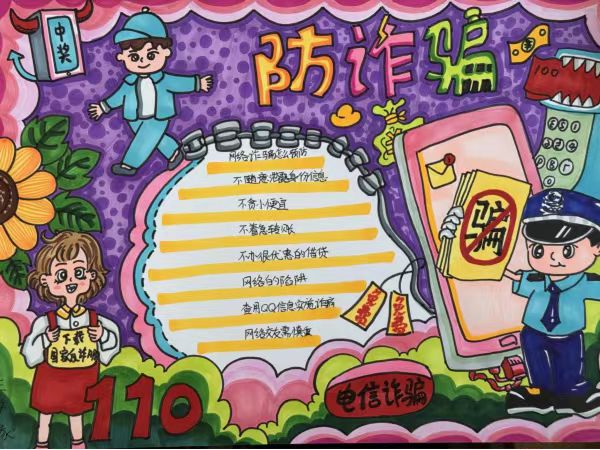 中奖
防诈骗
100
网络诈骗怎么预防
不随意泄露身份信息
不贪小便宜
不着急转账
不办很优惠的借贷
网络的的陷阱
查用QQ信息实施诈骗
网络交友需慎重
骗
免费
下载
国家反诈
110
电信诈骗